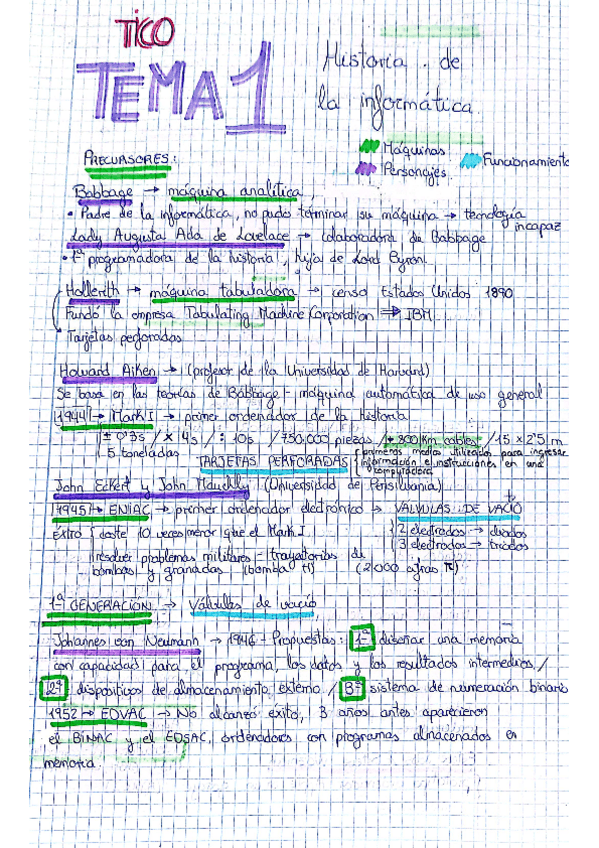 TICO
TEMA 1
Historia de
la informática
Máquinas
Funcionamiento
Personajes
PRECURSORES:
Babbage → máquina analítica
• Padre de la informática, no pudo terminar su máquina → tecnología incapaz
Lady Augusta Ada de Lovelace → colaboradora de Babbage
• 1ª programadora de la historia, hija de Lord Byron.
Hollerith → máquina tabuladora → censo Estados Unidos 1890
Fundó la empresa Tabulating Machine Corporation ⇒ IBM
• Tarjetas perforadas
Howard Aiken → (profesor de la Universidad de Harvard)
Se basa en las teorías de Babbage - máquina automática de uso general
1944 → Mark I → primer ordenador de la historia
± 0'3s / x 4s / : 10s / 750.000 piezas / + 800 Km cables / 15 x 2'5 m
5 toneladas
TARJETAS PERFORADAS
primeros medios utilizados para ingresar
información e instrucciones en una
computadora
John Eckert y John Mauchly (Universidad de Pensilvania)
1945 → ENIAC → primer ordenador electrónico → VÁLVULAS DE VACÍO
Éxito
coste 10 veces menor que el Mark I
2 electrodos → diodos
3 electrodos → triodos
resolver problemas militares - trayectorias de
bombas y granadas (bomba H) (2.000 cifras π)
1ª GENERACIÓN → Válvulas de vacío
Johannes von Neumann → 1946 - Propuestas: 1ª diseñar una memoria
con capacidad para el programa, los datos y los resultados intermedios /
2ª dispositivos de almacenamiento externo / 3ª sistema de numeración binario
1952 → EDVAC → No alcanzó éxito, 3 años antes aparecieron
el BINAC y el EDSAC, ordenadores con programas almacenados en
memoria.